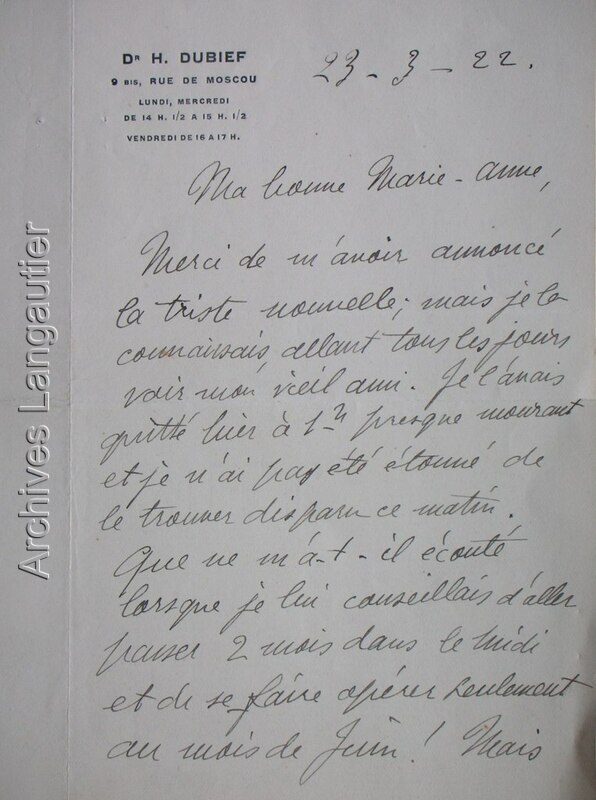 Dr H. DUBIEF
9 BIS, RUE DE MOSCOU
LUNDI, MERCREDI
DE 14 H. 1/2 A 15 H. 1/2
VENDREDI DE 16 A 17 H.
23-3-22.
Ma bonne Marie-Anne,
Merci de m'avoir annoncé
la triste nouvelle; mais je la
connaissais allant tous les jours
voir mon vieil ami. Je l'avais
quitté hier à 1h presque mourant
et je n'ai pas été étonné de
le trouver disparu ce matin.
Que ne m'a-t-il écouté
lorsque je lui conseillais d'aller
passer 2 mois dans le Midi
et de se faire opérer seulement
au mois de Juin! Mais
Archives Langautier